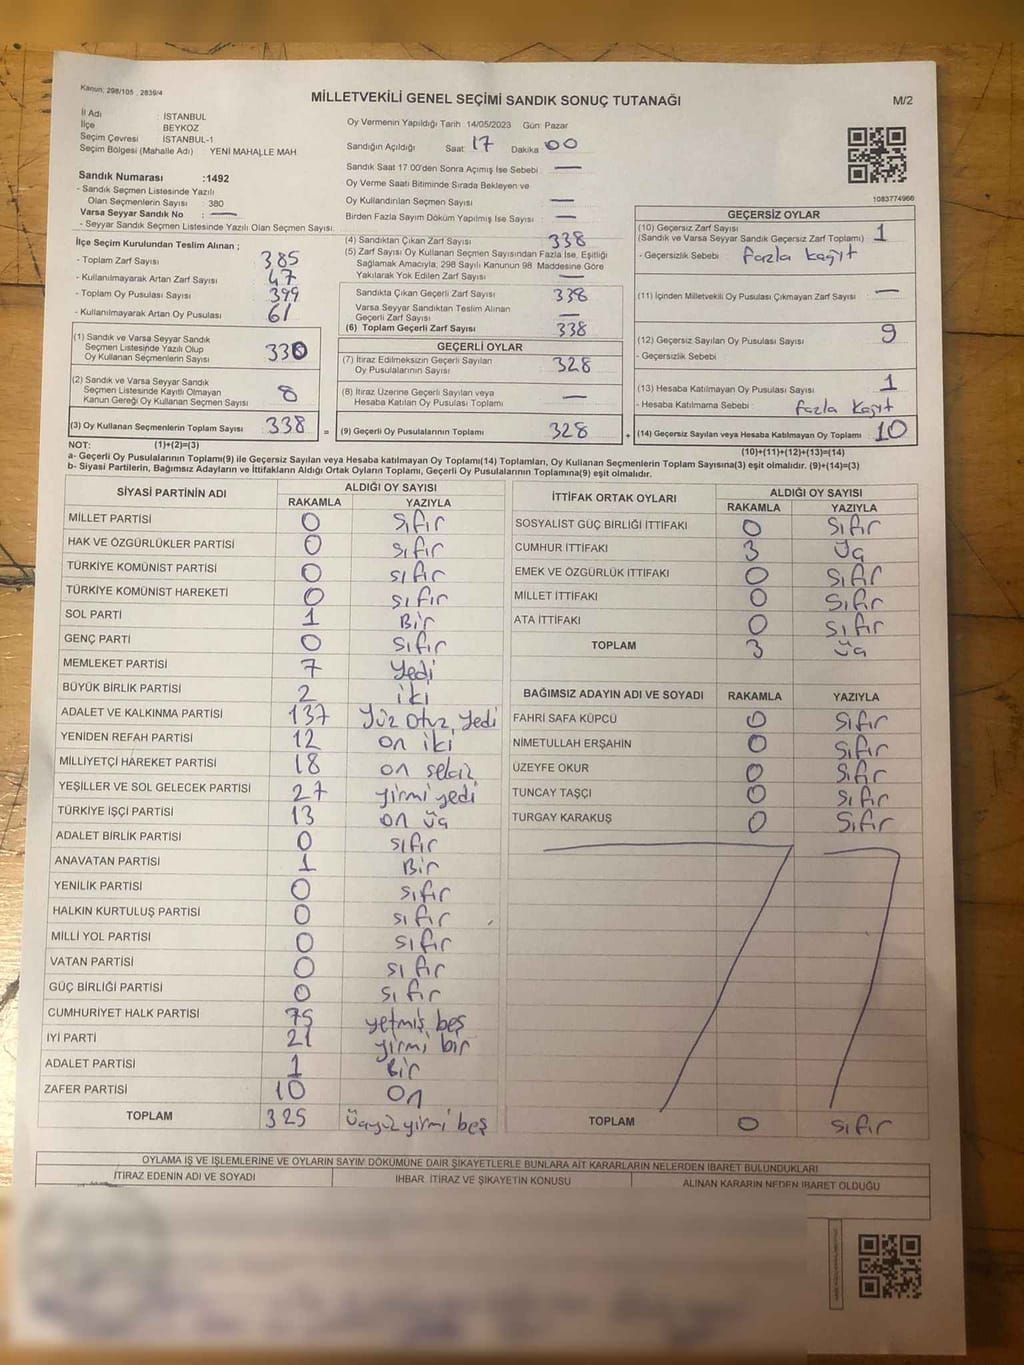 Kanun: 298/105 , 2839/4
MİLLETVEKİLİ GENEL SEÇİMİ SANDIK SONUÇ TUTANAĞI
M/2
İl Adı : İSTANBUL
İlçe BEYKOZ
Seçim Çevresi : İSTANBUL-1
Seçim Bölgesi (Mahalle Adı) YENİ MAHALLE MAH
Oy Vermenin Yapıldığı Tarih 14/05/2023 Gün: Pazar
Sandığın Açıldığı Saat: 17 Dakika 00
Sandık Saat 17 00'den Sonra Açımış İse Sebebi —
Oy Verme Saati Bitiminde Sırada Bekleyen ve
Oy Kullandırılan Seçmen Sayısı —
Birden Fazla Sayım Döküm Yapılmış İse Sayısı —
1083774966
Sandık Numarası :1492
- Sandık Seçmen Listesinde Yazılı
Olan Seçmenlerin Sayısı : 380
Varsa Seyyar Sandık No : —
- Seyyar Sandık Seçmen Listesinde Yazılı Olan Seçmen Sayısı
İlçe Seçim Kurulundan Teslim Alınan ;
- Toplam Zarf Sayısı 385
- Kullanılmayarak Artan Zarf Sayısı 47
- Toplam Oy Pusulası Sayısı 399
- Kullanılmayarak Artan Oy Pusulası 61
(1) Sandık ve Varsa Seyyar Sandık
Seçmen Listesinde Yazılı Olup
Oy Kullanan Seçmenlerin Sayısı 330
(2) Sandık ve Varsa Seyyar Sandık
Seçmen Listesinde Kayıtlı Olmayan
Kanun Gereği Oy Kullanan Seçmen Sayısı 8
(3) Oy Kullanan Seçmenlerin Toplam Sayısı 338 =
(4) Sandıktan Çıkan Zarf Sayısı 338
(5) Zarf Sayısı Oy Kullanan Seçmen Sayısından Fazla İse, Eşitliği
Sağlamak Amacıyla, 298 Sayılı Kanunun 98 Maddesine Göre
Yakılarak Yok Edilen Zarf Sayısı —
Sandıkta Çıkan Geçerli Zarf Sayısı 338
Varsa Seyyar Sandıktan Teslim Alınan
Geçerli Zarf Sayısı —
(6) Toplam Geçerli Zarf Sayısı 338
GEÇERLİ OYLAR
(7) İtiraz Edilmeksizin Geçerli Sayılan
Oy Pusulalarının Sayısı 328
(8) İtiraz Üzerine Geçerli Sayılan veya
Hesaba Katılan Oy Pusulası Toplamı —
(9) Geçerli Oy Pusulalarının Toplamı 328 +
GEÇERSİZ OYLAR
(10) Geçersiz Zarf Sayısı
(Sandık ve Varsa Seyyar Sandık Geçersiz Zarf Toplamı) 1
- Geçersizlik Sebebi fazla kağıt
(11) İçinden Milletvekili Oy Pusulası Çıkmayan Zarf Sayısı —
(12) Geçersiz Sayılan Oy Pusulası Sayısı 9
- Geçersizlik Sebebi
(13) Hesaba Katılmayan Oy Pusulası Sayısı 1
- Hesaba Katılmama Sebebi fazla kağıt
(14) Geçersiz Sayılan veya Hesaba Katılmayan Oy Toplamı 10
NOT: (1)+(2)=(3)
(10)+(11)+(12)+(13)=(14)
a- Geçerli Oy Pusulalarının Toplamı(9) ile Geçersiz Sayılan veya Hesaba katılmayan Oy Toplamı(14) Toplamları, Oy Kullanan Seçmenlerin Toplam Sayısına(3) eşit olmalıdır. (9)+(14)=(3)
b- Siyasi Partilerin, Bağımsız Adayların ve İttifakların Aldığı Ortak Oyların Toplamı, Geçerli Oy Pusulalarının Toplamına(9) eşit olmalıdır.
SİYASİ PARTİNİN ADI ALDIĞI OY SAYISI
RAKAMLA YAZIYLA
MİLLET PARTİSİ 0 sıfır
HAK VE ÖZGÜRLÜKLER PARTİSİ 0 sıfır
TÜRKİYE KOMÜNİST PARTİSİ 0 sıfır
TÜRKİYE KOMÜNİST HAREKETİ 0 sıfır
SOL PARTİ 1 Bir
GENÇ PARTİ 0 sıfır
MEMLEKET PARTİSİ 7 yedi
BÜYÜK BİRLİK PARTİSİ 2 iki
ADALET VE KALKINMA PARTİSİ 137 Yüz otuz yedi
YENİDEN REFAH PARTİSİ 12 on iki
MİLLİYETÇİ HAREKET PARTİSİ 18 on sekiz
YEŞİLLER VE SOL GELECEK PARTİSİ 27 yirmi yedi
TÜRKİYE İŞÇİ PARTİSİ 13 on üç
ADALET BİRLİK PARTİSİ 0 sıfır
ANAVATAN PARTİSİ 1 Bir
YENİLİK PARTİSİ 0 sıfır
HALKIN KURTULUŞ PARTİSİ 0 sıfır
MİLLİ YOL PARTİSİ 0 sıfır
VATAN PARTİSİ 0 sıfır
GÜÇ BİRLİĞİ PARTİSİ 0 sıfır
CUMHURİYET HALK PARTİSİ 75 yetmiş beş
İYİ PARTİ 21 yirmi bir
ADALET PARTİSİ 1 Bir
ZAFER PARTİSİ 10 On
TOPLAM 325 üçyüzyirmi beş
İTTİFAK ORTAK OYLARI ALDIĞI OY SAYISI
RAKAMLA YAZIYLA
SOSYALİST GÜÇ BİRLİĞİ İTTİFAKI 0 sıfır
CUMHUR İTTİFAKI 3 üç
EMEK VE ÖZGÜRLÜK İTTİFAKI 0 sıfır
MİLLET İTTİFAKI 0 sıfır
ATA İTTİFAKI 0 sıfır
TOPLAM 3 üç
BAĞIMSIZ ADAYIN ADI VE SOYADI RAKAMLA YAZIYLA
FAHRİ SAFA KÜPCÜ 0 sıfır
NİMETULLAH ERŞAHİN 0 sıfır
ÜZEYFE OKUR 0 sıfır
TUNCAY TAŞÇI 0 sıfır
TURGAY KARAKUŞ 0 sıfır
TOPLAM 0 sıfır
OYLAMA İŞ VE İŞLEMLERİNE VE OYLARIN SAYIM DÖKÜMÜNE DAİR ŞİKAYETLERLE BUNLARA AİT KARARLARIN NELERDEN İBARET BULUNDUKLARI
İTİRAZ EDENİN ADI VE SOYADI İHBAR İTİRAZ VE ŞİKAYETİN KONUSU ALINAN KARARIN NEDEN İBARET OLDUĞU